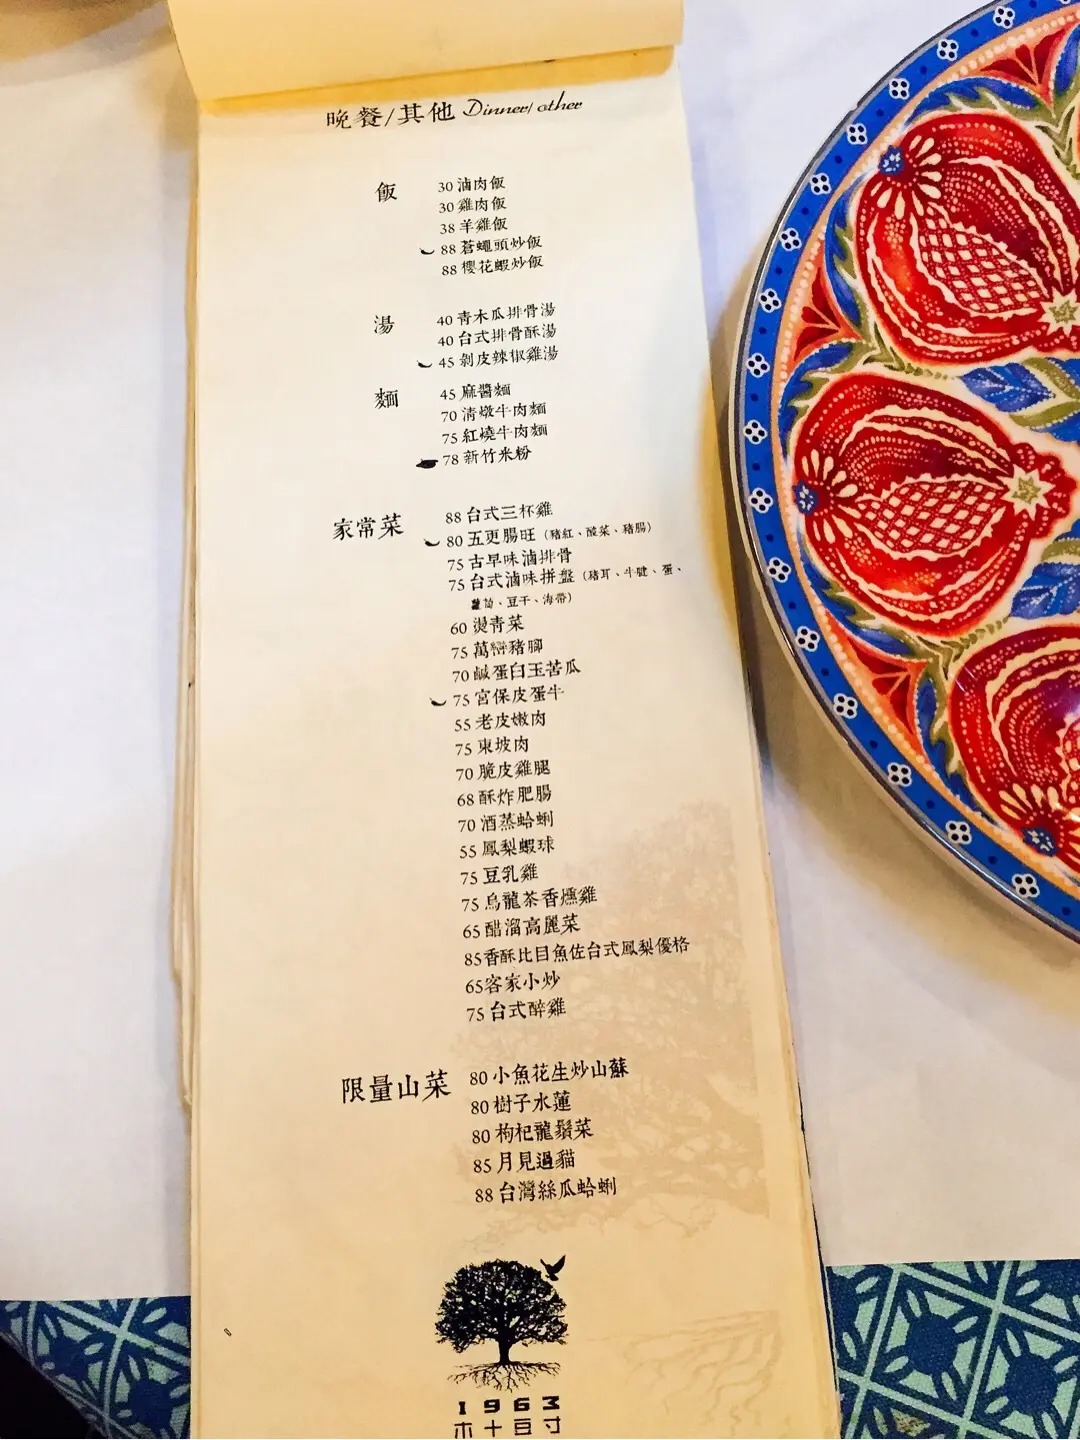 晚餐/其他 Dinner/other
飯
30 滷肉飯
30 雞肉飯
38 羊雞飯
88 蒼蠅頭炒飯
88 櫻花蝦炒飯
湯
40 青木瓜排骨湯
40 台式排骨酥湯
45 剝皮辣椒雞湯
麵
45 麻醬麵
70 清燉牛肉麵
75 紅燒牛肉麵
78 新竹米粉
家常菜
88 台式三杯雞
80 五更腸旺 (豬紅、酸菜、豬腸)
75 古早味滷排骨
75 台式滷味拼盤 (豬耳、牛腱、蛋、
蘿蔔、豆干、海帶)
60 燙青菜
75 萬巒豬腳
70 鹹蛋白玉苦瓜
75 宮保皮蛋牛
55 老皮嫩肉
75 東坡肉
70 脆皮雞腿
68 酥炸肥腸
70 酒蒸蛤蜊
55 鳳梨蝦球
75 豆乳雞
75 烏龍茶香燻雞
65 醋溜高麗菜
85 香酥比目魚佐台式鳳梨優格
65 客家小炒
75 台式醉雞
限量山菜
80 小魚花生炒山蘇
80 樹子水蓮
80 枸杞龍鬚菜
85 月見過貓
88 台灣絲瓜蛤蜊
1963
木十豆寸